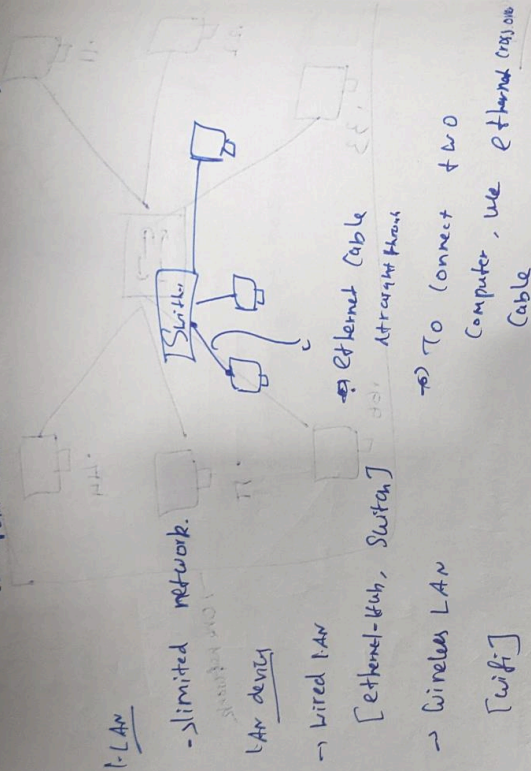 1. LAN
→ limited network.
LAN device
→ wired LAN
[ethernet-Hub, Switch]
→ Wireless LAN
[wifi]
Switch
→ ethernet Cable
straight through
→ To Connect two
Computer, use ethernet cross over
Cable